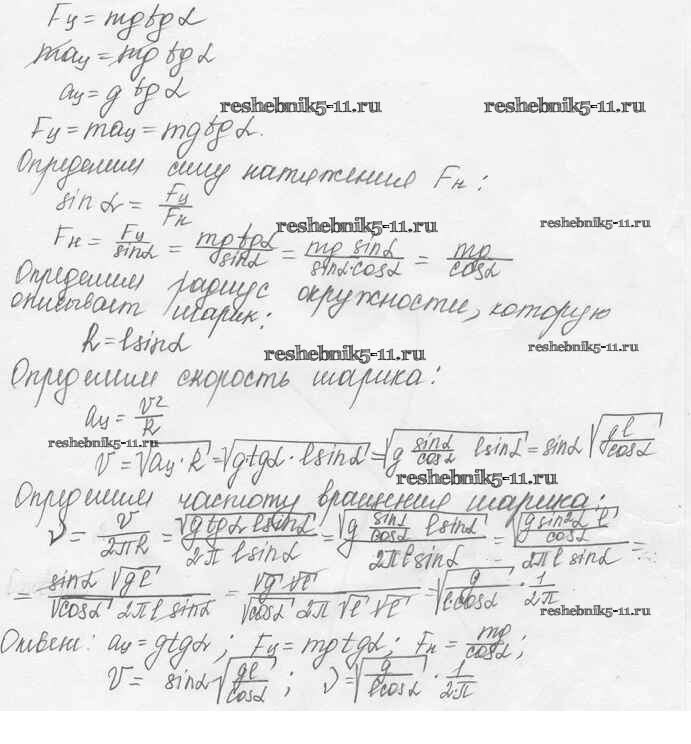 Fц = mg tg α
maц = mg tg α
aц = g tg α
reshebnik5-11.ru reshebnik5-11.ru
Fц = maц = mg tg α.
Определим силу натяжения Fн:
sin α = Fц/Fн
reshebnik5-11.ru reshebnik5-11.ru
Fн = Fц/sin α = mg tg α/sin α = mg sin α/sin α·cos α = mg/cos α
Определим радиус окружности, которую
описывает шарик:
R = l sin α
reshebnik5-11.ru reshebnik5-11.ru
Определим скорость шарика:
aц = v²/R
reshebnik5-11.ru
v = √(aц·R) = √(g tg α · l sin α) = √(g sin α/cos α l sin α) = sin α √(gl/cos α)
reshebnik5-11.ru
Определим частоту вращения шарика:
ν = v/2πR = √(g tg α l sin α)/2π l sin α = √(g sin α/cos α l sin α)/2π l sin α = √(g sin² α l/cos α)/2π l sin α =
= sin α √(gl)/√(cos α) 2π l sin α = √g √l/√(cos α) 2π √l √l = √(g/l cos α) · 1/2π.
reshebnik5-11.ru
Ответ: aц = g tg α; Fц = mg tg α; Fн = mg/cos α;
v = sin α √(gl/cos α); ν = √(g/l cos α) · 1/2π